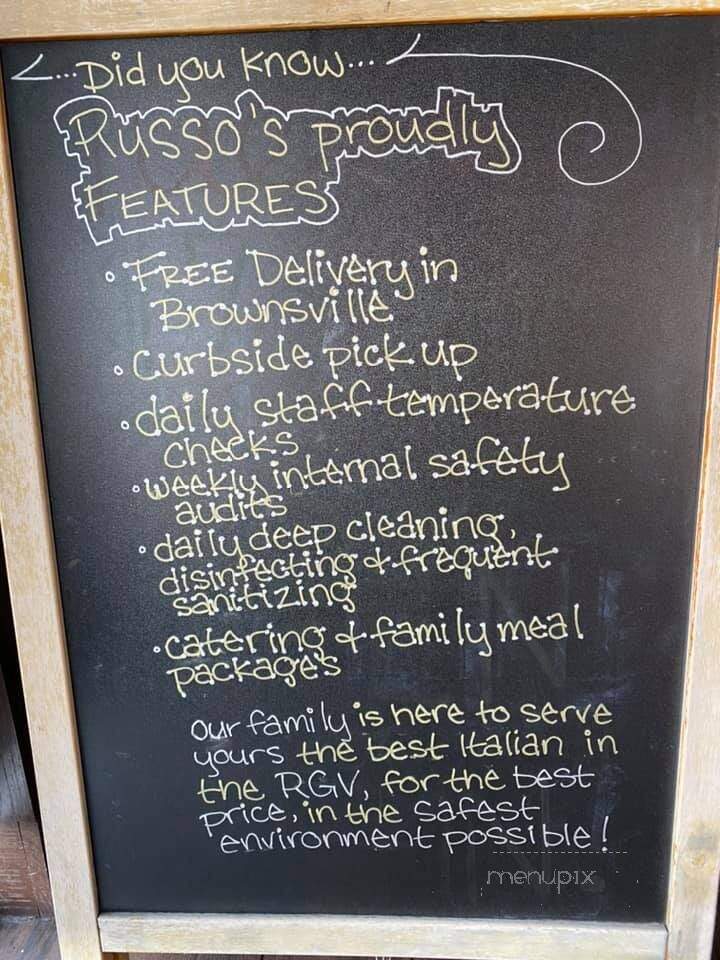 ...Did you know...
Russo's proudly
FEATURES
• FREE Delivery in
Brownsville
• Curbside pick up
• daily staff temperature
checks
• weekly internal safety
audits
• daily deep cleaning,
disinfecting & frequent
sanitizing
• catering & family meal
packages
our family is here to serve
yours the best Italian in
the RGV, for the best
price, in the safest
environment possible!
menupix